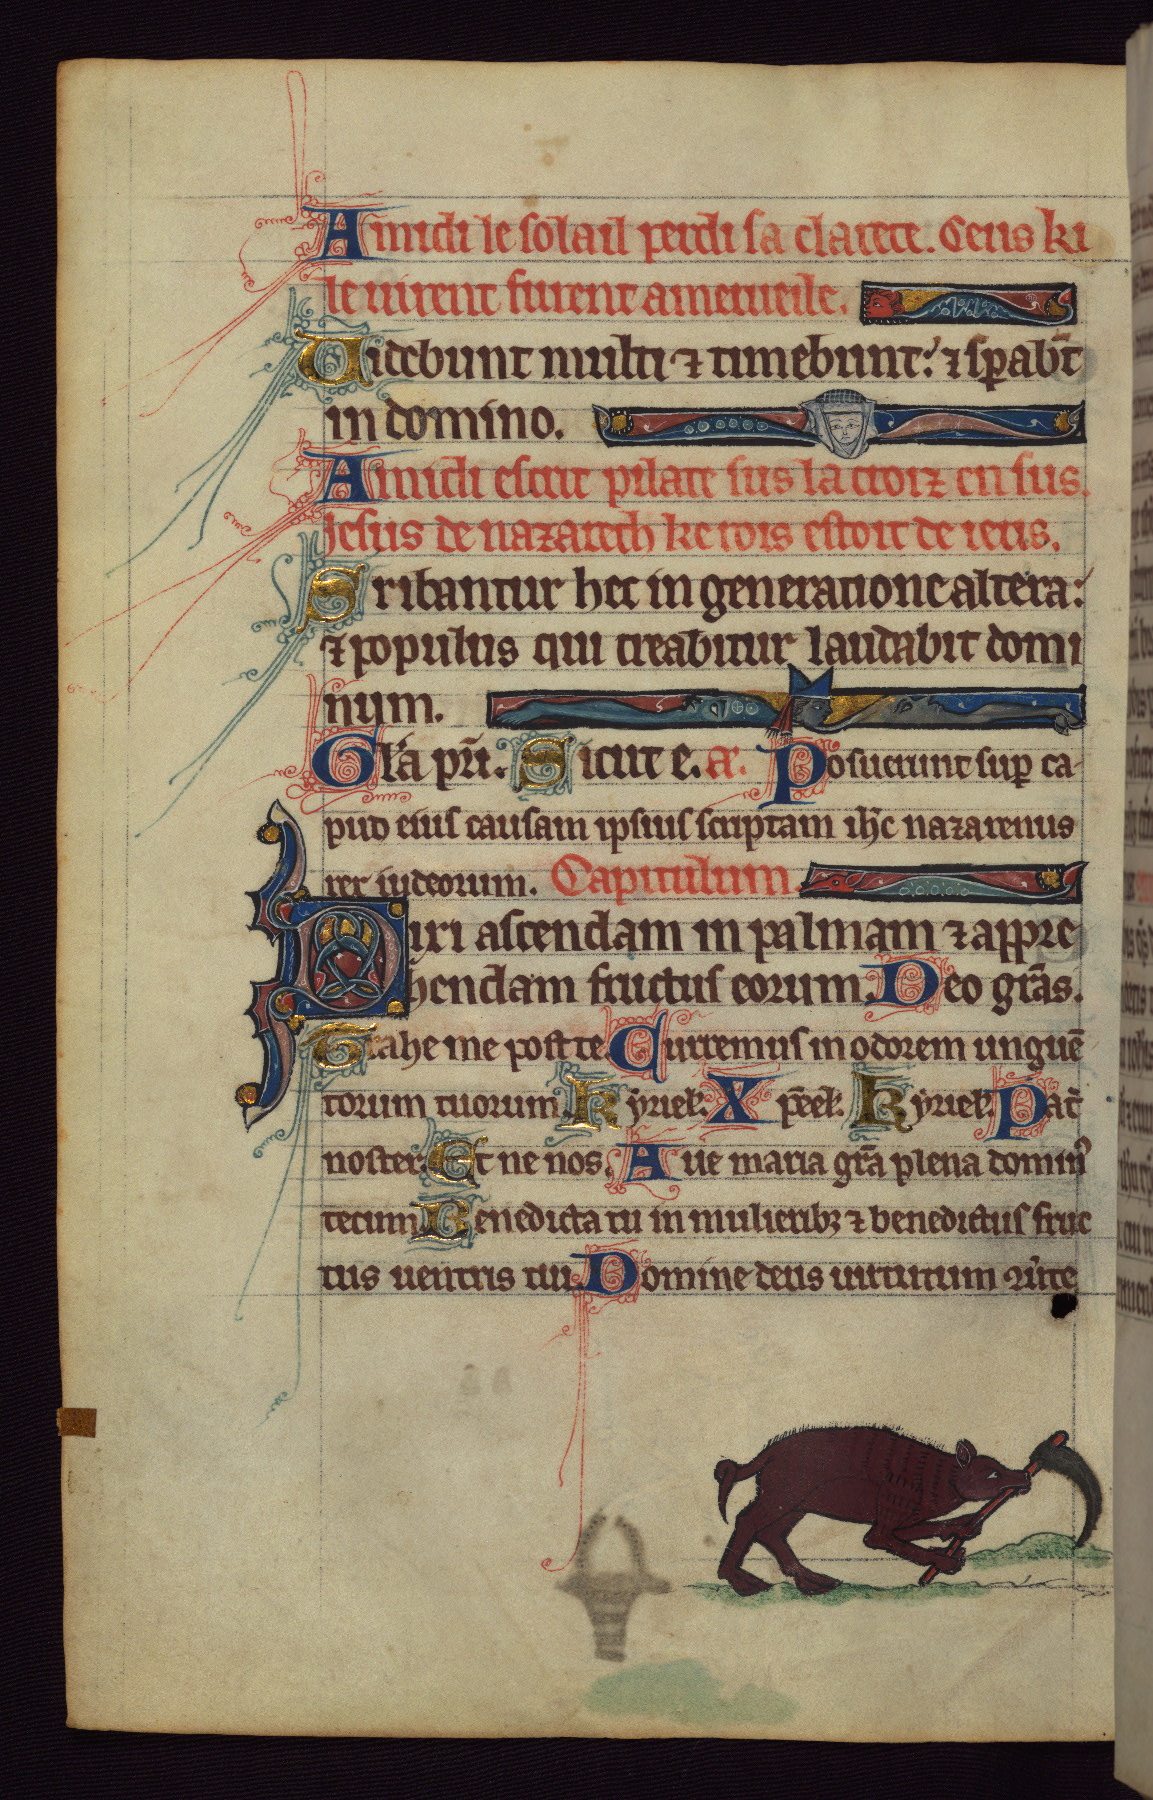 A midi le solail perdi sa clartete. Ceus ki
le uirent furent a merueile.
Uidebunt multi ⁊ timebunt: ⁊ sꝑab̄t
in domino.
A midi escrit pilate sus la croiz en sus.
Jesus de nazareth ke rois estoit de ieus.
Sribantur hec in generatione altera:
⁊ populus qui creabitur laudabit domi
num.
Gl̃a pr̃i. Sicut e. a͂. Posuerunt suꝑ ca-
pud eius causam ipsius scriptam ih̃c nazarenus
rex iudeorum. Capitulum.
Dixi ascendam in palmam ⁊ appre
hendam fructus eorum. Deo gr̃as.
Trahe me post te. Curremus in odorem unguẽ
torum tuorum. Kyriel. X p̃eel. Kyriel. Pat̃
noster. Et ne nos. Aue maria gr̃a plena domin᾿
tecum Benedicta tu in mulierib; ⁊ benedictus fruc
tus uentris tui. Domine deus uirtutum